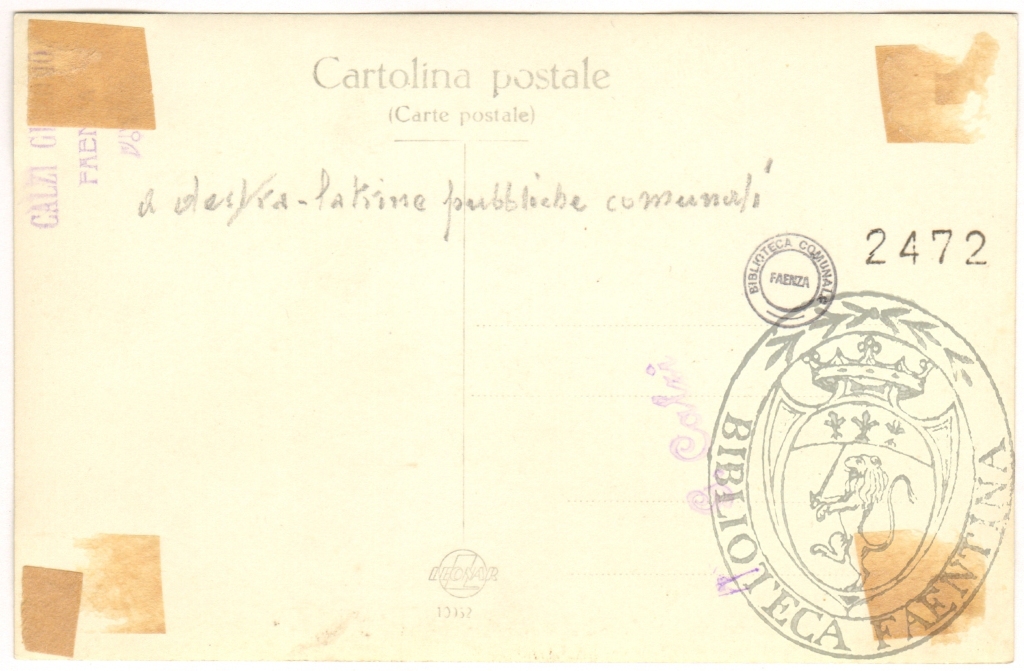 Cartolina postale
(Carte postale)
CALZI
FAEN
a destra - latrine pubbliche comunali
BIBLIOTECA COMUNALE
FAENZA
2472
BIBLIOTECA FAENTINA